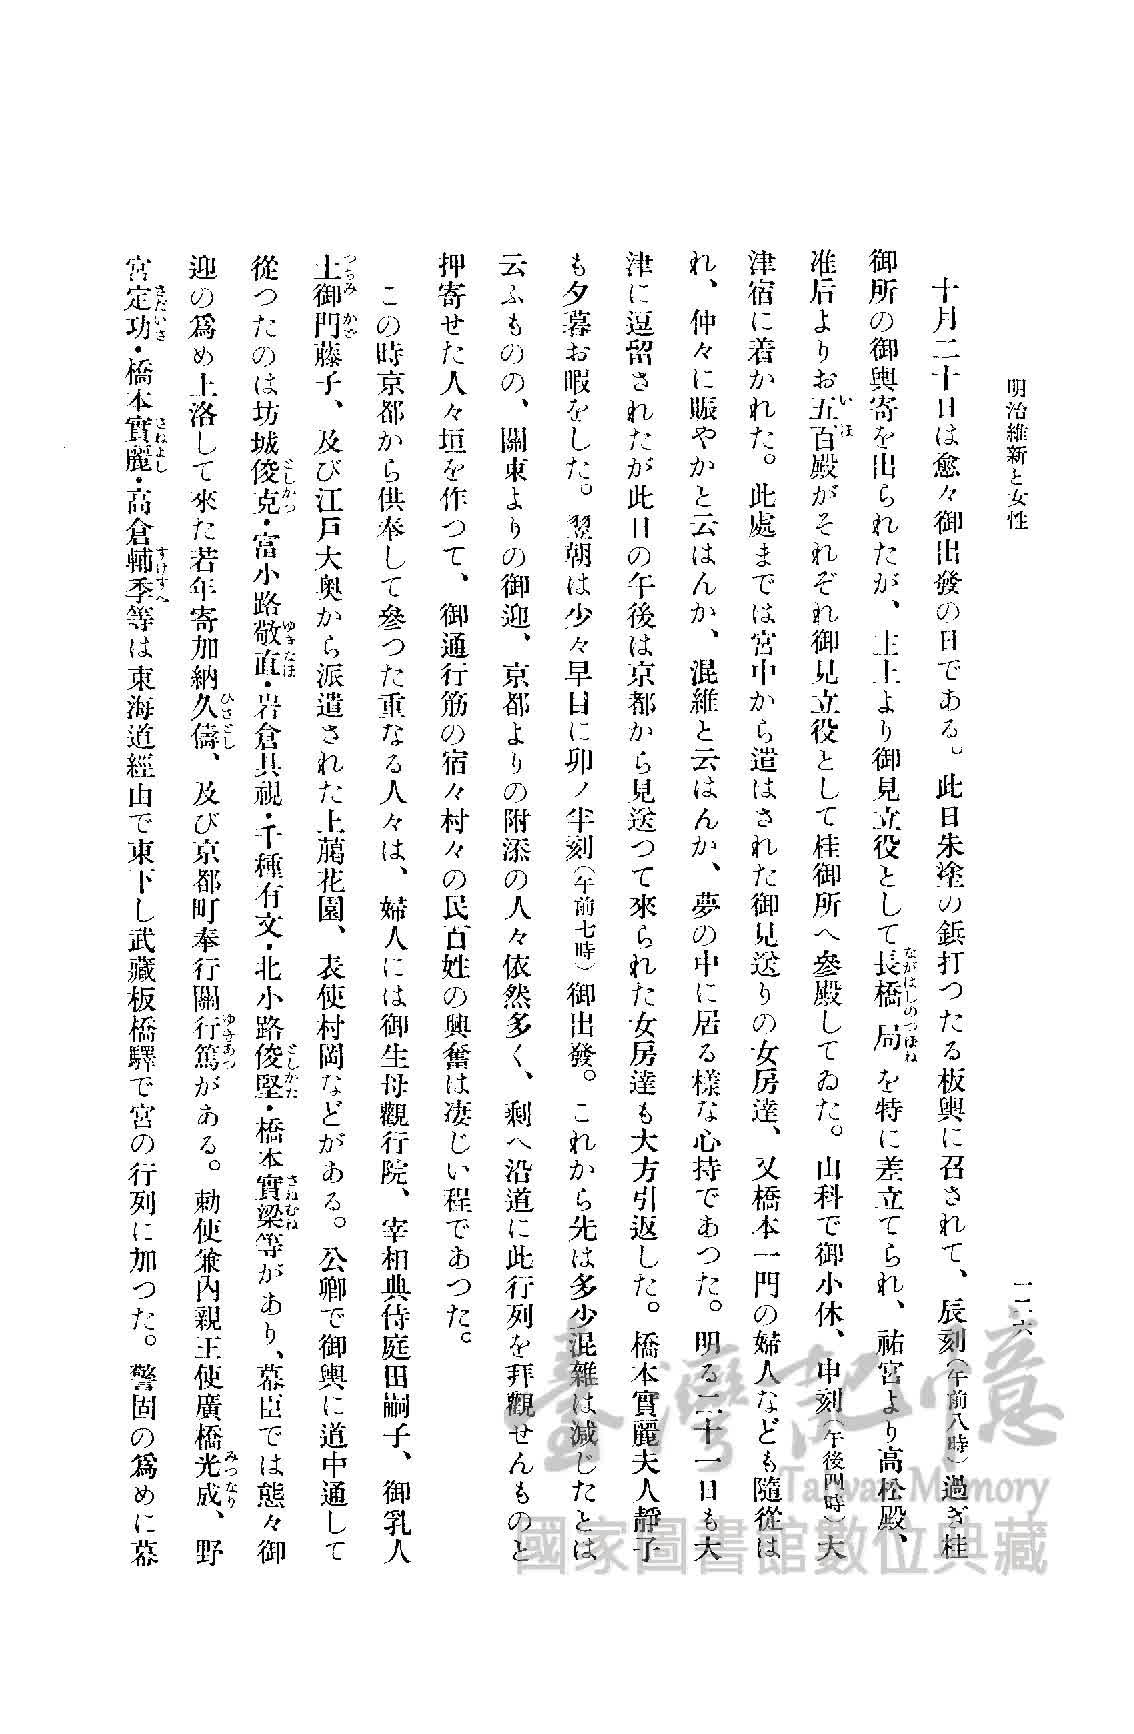 明治維新と女性
一二六
十月二十日は愈々御出發の日である。此日朱塗の鋲打つたる板輿に召されて、辰刻(午前八時)過ぎ桂
御所の御輿寄を出られたが、主上より御見立役として長橋局を特に差立てられ、祐宮より高松殿、
准后よりお五百殿がそれぞれ御見立役として桂御所へ參殿してゐた。山科で御小休、申刻(午後四時)大
津宿に着かれた。此處までは宮中から遣はされた御見送りの女房達、又橋本一門の婦人なども隨從は
れ、仲々に賑やかと云はんか、混雑と云はんか、夢の中に居る樣な心持であつた。明る二十一日も大
津に逗留されたが此日の午後は京都から見送つて來られた女房達も大方引返した。橋本實麗夫人靜子
も夕暮お暇をした。翌朝は少々早目に卯ノ半刻(午前七時)御出發。これから先は多少混雜は減じたとは
云ふものの、關東よりの御迎、京都よりの附添の人々依然多く、剩へ沿道に此行列を拜觀せんものと
押寄せた人々垣を作つて、御通行筋の宿々村々の民百姓の興奮は凄じい程であつた。
この時京都から供奉して參つた重なる人々は、婦人には御生母觀行院、宰相典侍庭田嗣子、御乳人
土御門藤子、及び江戸大奥から派遣された上﨟花園、表使村岡などがある。公卿で御輿に道中通して
從つたのは坊城俊克・富小路敬直・岩倉具視・千種有文・北小路俊堅・橋本實梁等があり、幕臣では態々御
迎の爲め上洛して來た若年寄加納久儔、及び京都町奉行關行篤がある。勅使兼内親王使廣橋光成、野
宮定功・橋本實麗・高倉輔季等は東海道經由で東下し武藏板橋驛で宮の行列に加つた。警固の爲めに幕